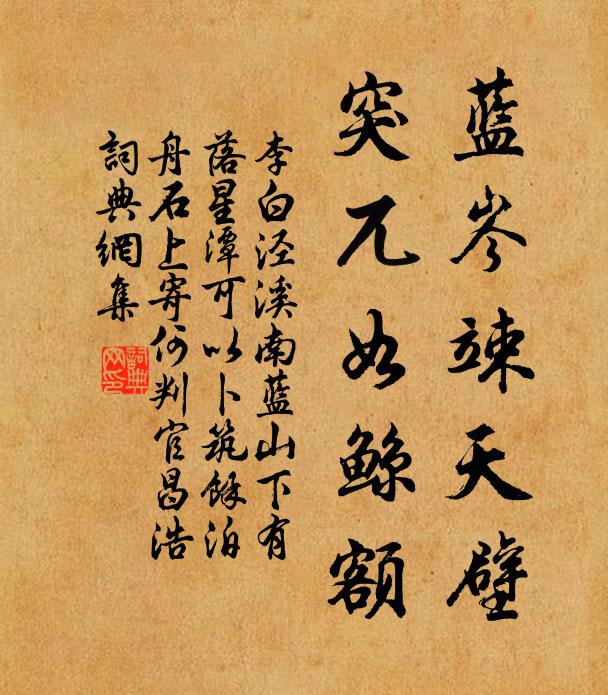 藍岑竦天壁
突兀如鲸額
李白泾溪南藍山下有
落星潭可以卜筑餘泊
舟石上寄何判官昌浩
詞典網集
詞典网印